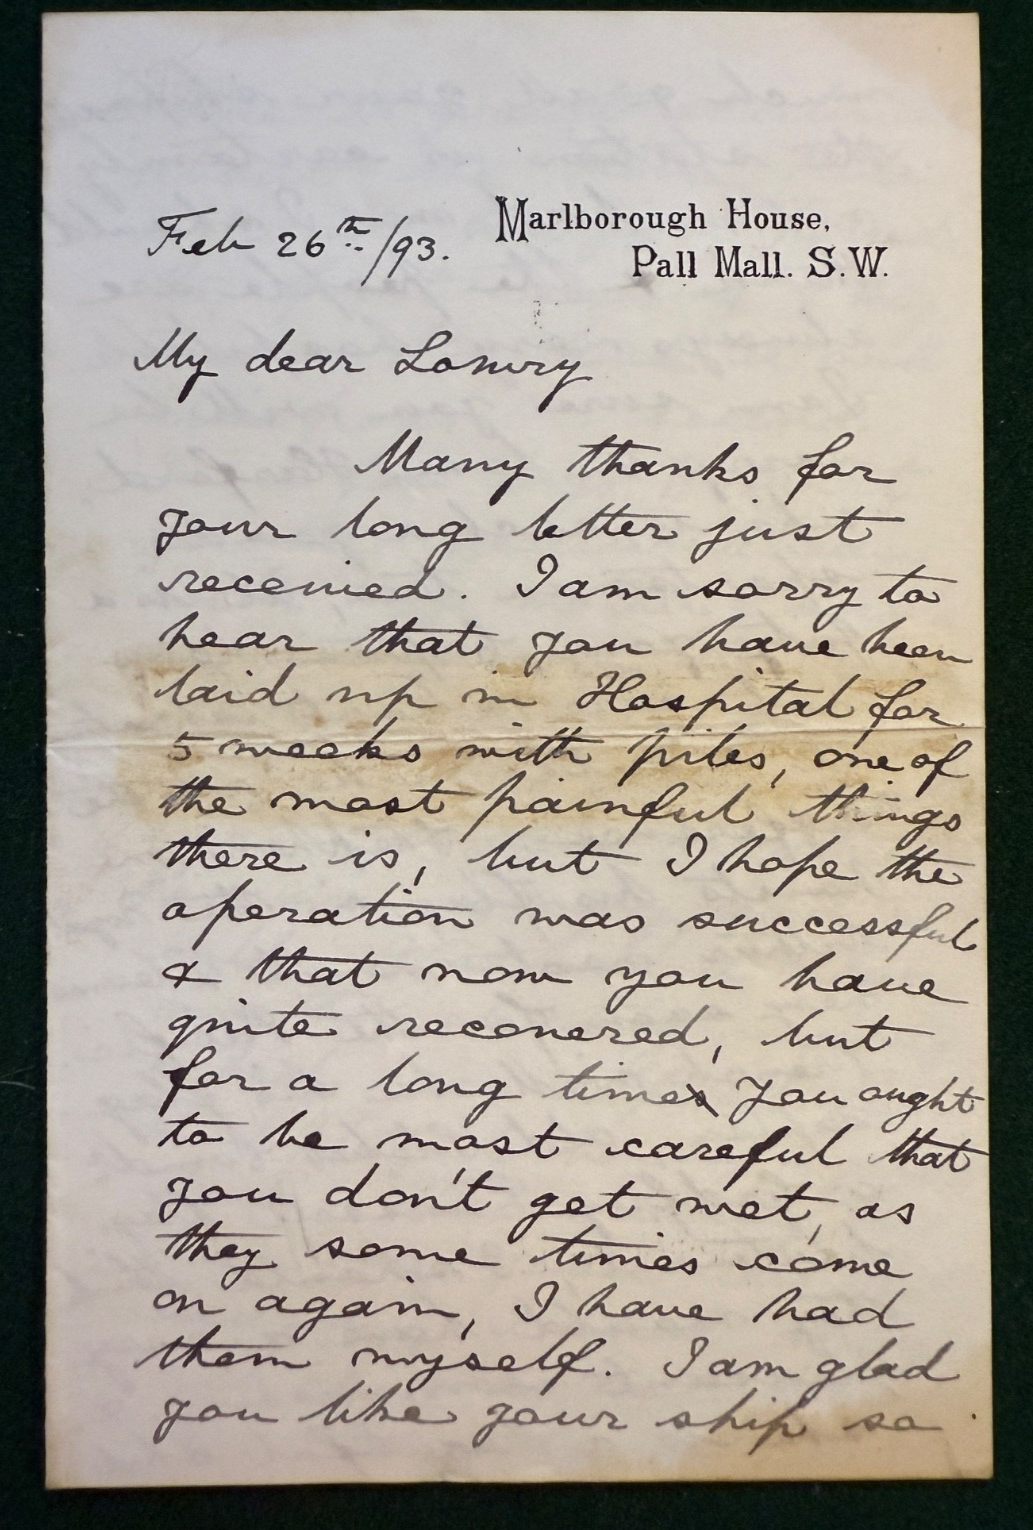 Feb 26th/93.
Marlborough House,
Pall Mall. S.W.
My dear Lowry
Many thanks for
your long letter just
received. I am sorry to
hear that you have been
laid up in Hospital for
5 weeks with piles, one of
the most painful things
there is, but I hope the
operation was successful
& that now you have
quite recovered, but
for a long time you ought
to be most careful that
you don't get wet, as
they some times come
on again, I have had
them myself. I am glad
you like your ship so